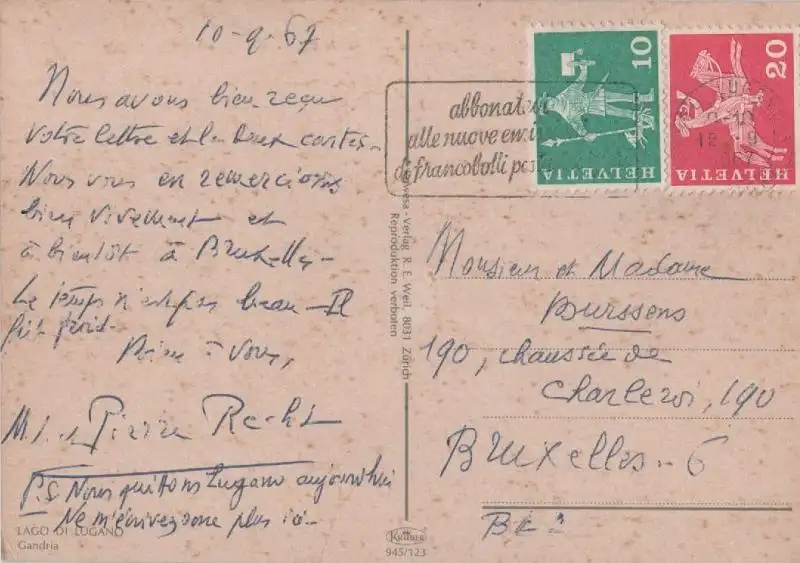 10-9-67
Nous avons bien reçu
votre lettre et les deux cartes.
Nous vous en remercions
bien vivement et
à bientôt à Bruxelles.
Le temps n'est pas beau - Il
fait froid.
Bien à vous,
Pierre
P.S. Nous quittons Lugano aujourd'hui
Ne m'écrivez donc plus ici.
LAGO DI LUGANO
Gandria
Verlag R. E. Weil, 8031 Zürich
Reproduktion verboten
KRÜGER
945/123
abbonatevi
alle nuove
di francobolli
10
HELVETIA
20
HELVETIA
Monsieur et Madame
Burssens
190, chaussée de
Charleroi, 190
Bruxelles - 6